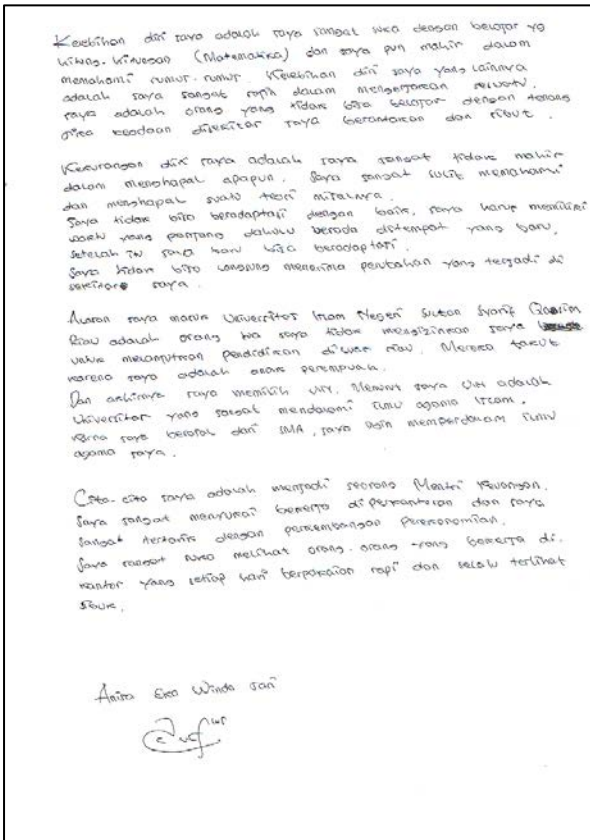 Kelebihan diri saya adalah saya sangat suka dengan belajar yg
hitung-hitungan (Matematika) dan saya pun mahir dalam
memahami rumus-rumus. Kelebihan diri saya yang lainnya
adalah saya sangat rapih dalam mengerjakan sesuatu.
saya adalah orang yang tidak bisa belajar dengan tenang
jika keadaan disekitar saya berantakan dan ribut.
Kekurangan diri saya adalah saya sangat tidak mahir
dalam menghapal apapun. Saya sangat sulit memahami
dan menghapal suatu teori misalnya.
Saya tidak bisa beradaptasi dengan baik, saya harus memiliki
waktu yang panjang dahulu berada ditempat yang baru,
setelah itu saya baru bisa beradaptasi.
Saya tidak bisa langsung menerima perubahan yang terjadi di
sekitar saya.
Alasan saya masuk Universitas Islam Negeri Sultan Syarif Qasim
Riau adalah orang tua saya tidak mengizinkan saya
untuk melanjutkan pendidikan diluar riau. Mereka takut
karena saya adalah anak perempuan.
Dan akhirnya saya memilih UIN. Menurut saya UIN adalah
Universitas yang sangat mendalami ilmu agama Islam.
karna saya berasal dari SMA, saya ingin memperdalam ilmu
agama saya.
Cita-cita saya adalah menjadi seorang Mentri Keuangan.
Saya sangat menyukai bekerja diperkantoran dan saya
sangat tertarik dengan perkembangan Perekonomian.
Saya sangat suka melihat orang-orang yang bekerja di
kantor yang setiap hari berpakaian rapi dan selalu terlihat
sibuk.
Anisa Eka Winda Sari